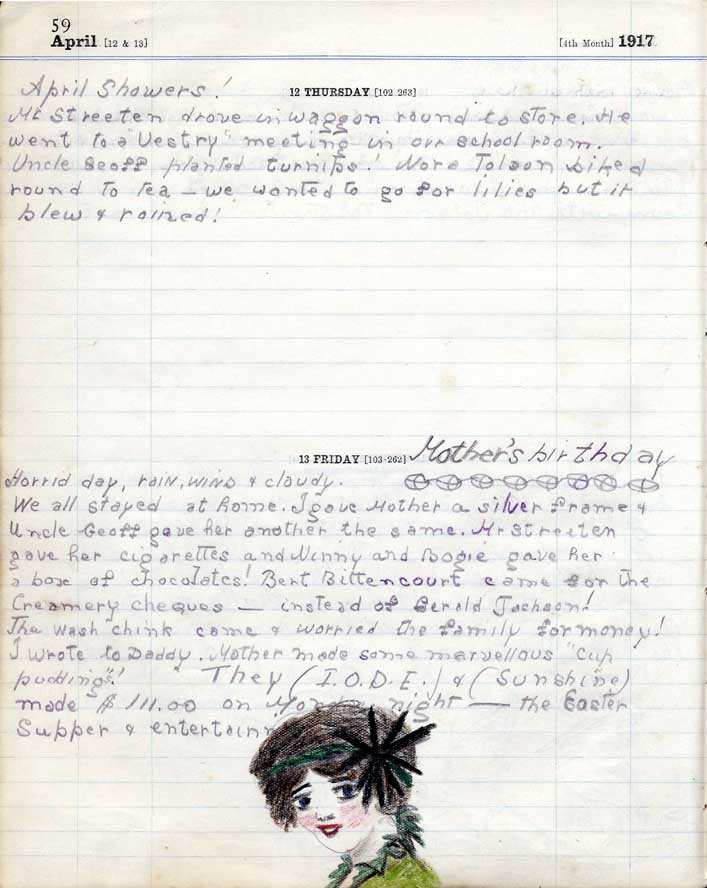 59
April [12 & 13] [4th Month] 1917
12 THURSDAY [102-263]
April Showers!
Mr Streeten drove in waggon round to store. He
went to a "Vestry" meeting in our school room.
Uncle Geoff planted turnips! Nora Tolson biked
round to tea — we wanted to go for lilies but it
blew & rained!
13 FRIDAY [103-262] Mother's birthday
Horrid day, rain, wind & cloudy.
We all stayed at home. I gave Mother a silver frame &
Uncle Geoff gave her another the same. Mr Streeten
gave her cigarettes and Ninny and Bogie gave her
a box of chocolates! Bert Bittencourt came for the
Creamery cheques — instead of Gerald Jackson!
The wash chink came & worried the family for money!
I wrote to Daddy. Mother made some marvellous "Cup
puddings"! They (I.O.D.E.) & (Sunshine)
made $111.00 on Monday night — the Easter
Supper & entertain